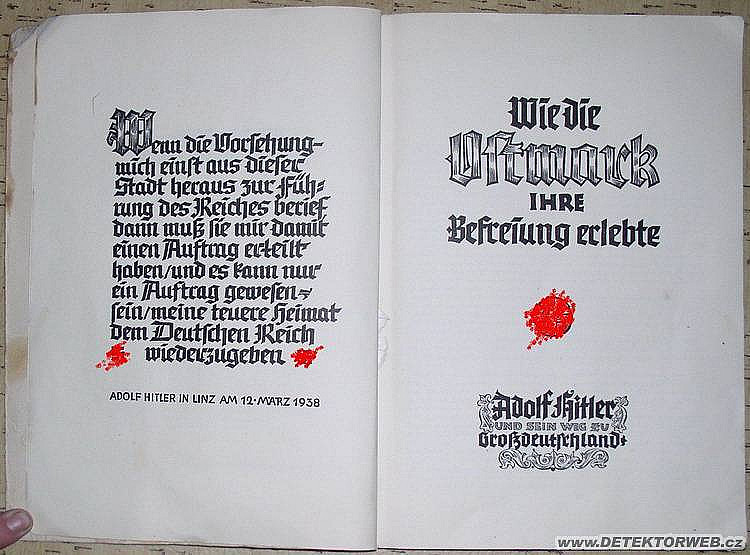 Wenn die Vorsehung
mich einst aus dieser
Stadt heraus zur Füh-
rung des Reiches berief
dann muß sie mir damit
einen Auftrag erteilt
haben/und es kann nur
ein Auftrag gewesen
sein/meine teuere Heimat
dem Deutschen Reich
wiederzugeben
ADOLF HITLER IN LINZ AM 12·MÄRZ 1938
Wie die
Ostmark
IHRE
Befreiung erlebte
Adolf Hitler
UND SEIN WEG ZU
Großdeutschland
www.DETEKTORWEB.cz